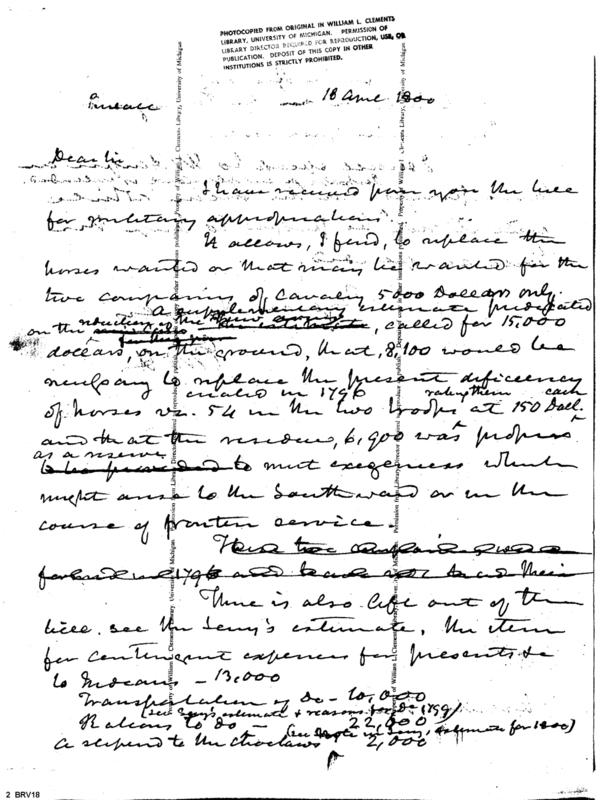 PHOTOCOPIED FROM ORIGINAL IN WILLIAM L. CLEMENTS
LIBRARY, UNIVERSITY OF MICHIGAN. PERMISSION OF
LIBRARY DIRECTOR REQUIRED FOR REPRODUCTION, USE, OR
PUBLICATION. DEPOSIT OF THIS COPY IN OTHER
INSTITUTIONS IS STRICTLY PROHIBITED.
18 1800
Dear Sir
I have received from you the bill
for military appropriations.
It allows, I find, to replace the
horses wanted or that may be wanted for the
two companies of Cavalry 5000 Dollars only.
A supplementary estimate predicated
on the reduction of the called for 15,000
dollars, on the ground, that, 8,100 would be
necessary to replace the present deficiency
created in 1796 rating them each
of horses vz. 54 in the two troops at 150 Doll.
and that the residue, 6,900 was proper
as a reserve
to meet exigences which
might arise to the Southward or in the
course of frontier service.
There is also left out of the
bill. see the Secy's estimate, the item
for contingent expences for presents &c
to Indians – 13,000
Transportation of Do – 10,000
(see Secy's estimate & reasons for Do 1799)
Rations to do – 22,000
(see note in Secy, estimate for 1800)
a stipend to the Choctaws 2,000
2 BRV18